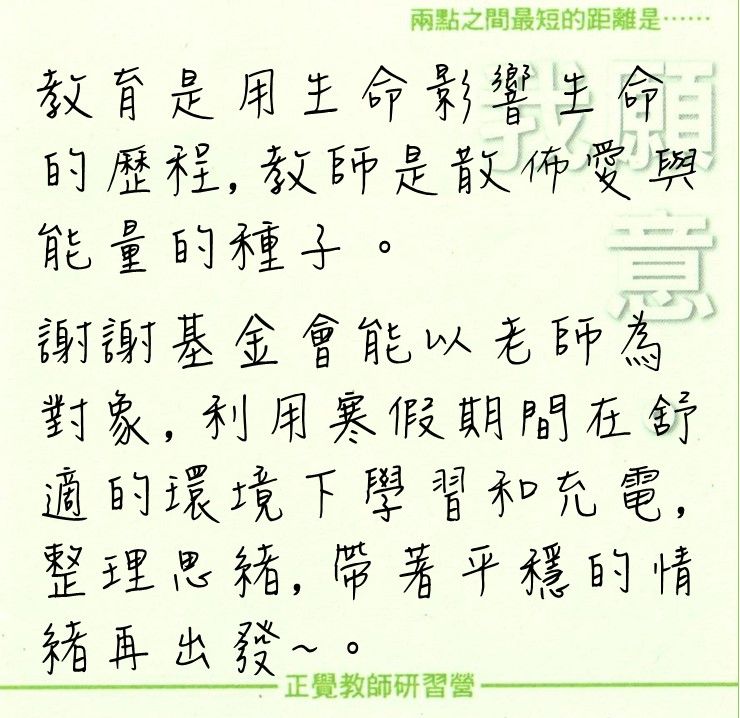 兩點之間最短的距離是……
我願意
教育是用生命影響生命
的歷程,教師是散佈愛與
能量的種子。
謝謝基金會能以老師為
對象,利用寒假期間在舒
適的環境下學習和充電,
整理思緒,帶著平穩的情
緒再出發~。
正覺教師研習營